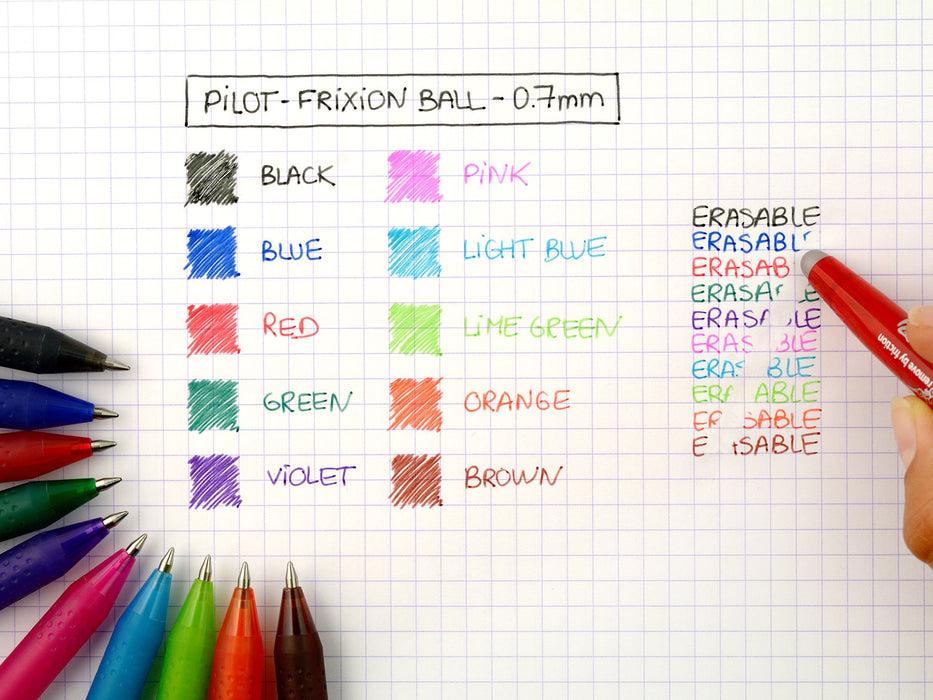 PiLOT - FRiXiON BALL - 0.7mm
BLACK
BLUE
RED
GREEN
ViOLET
PiNK
LiGHT BLUE
LiME GREEN
ORANGE
BROWN
ERASABLE
ERASABL
ERASAB
ERASA E
ERAS LE
ERAS BLE
ERAS BLE
ER ABLE
ER SABLE
E SABLE
remove by friction